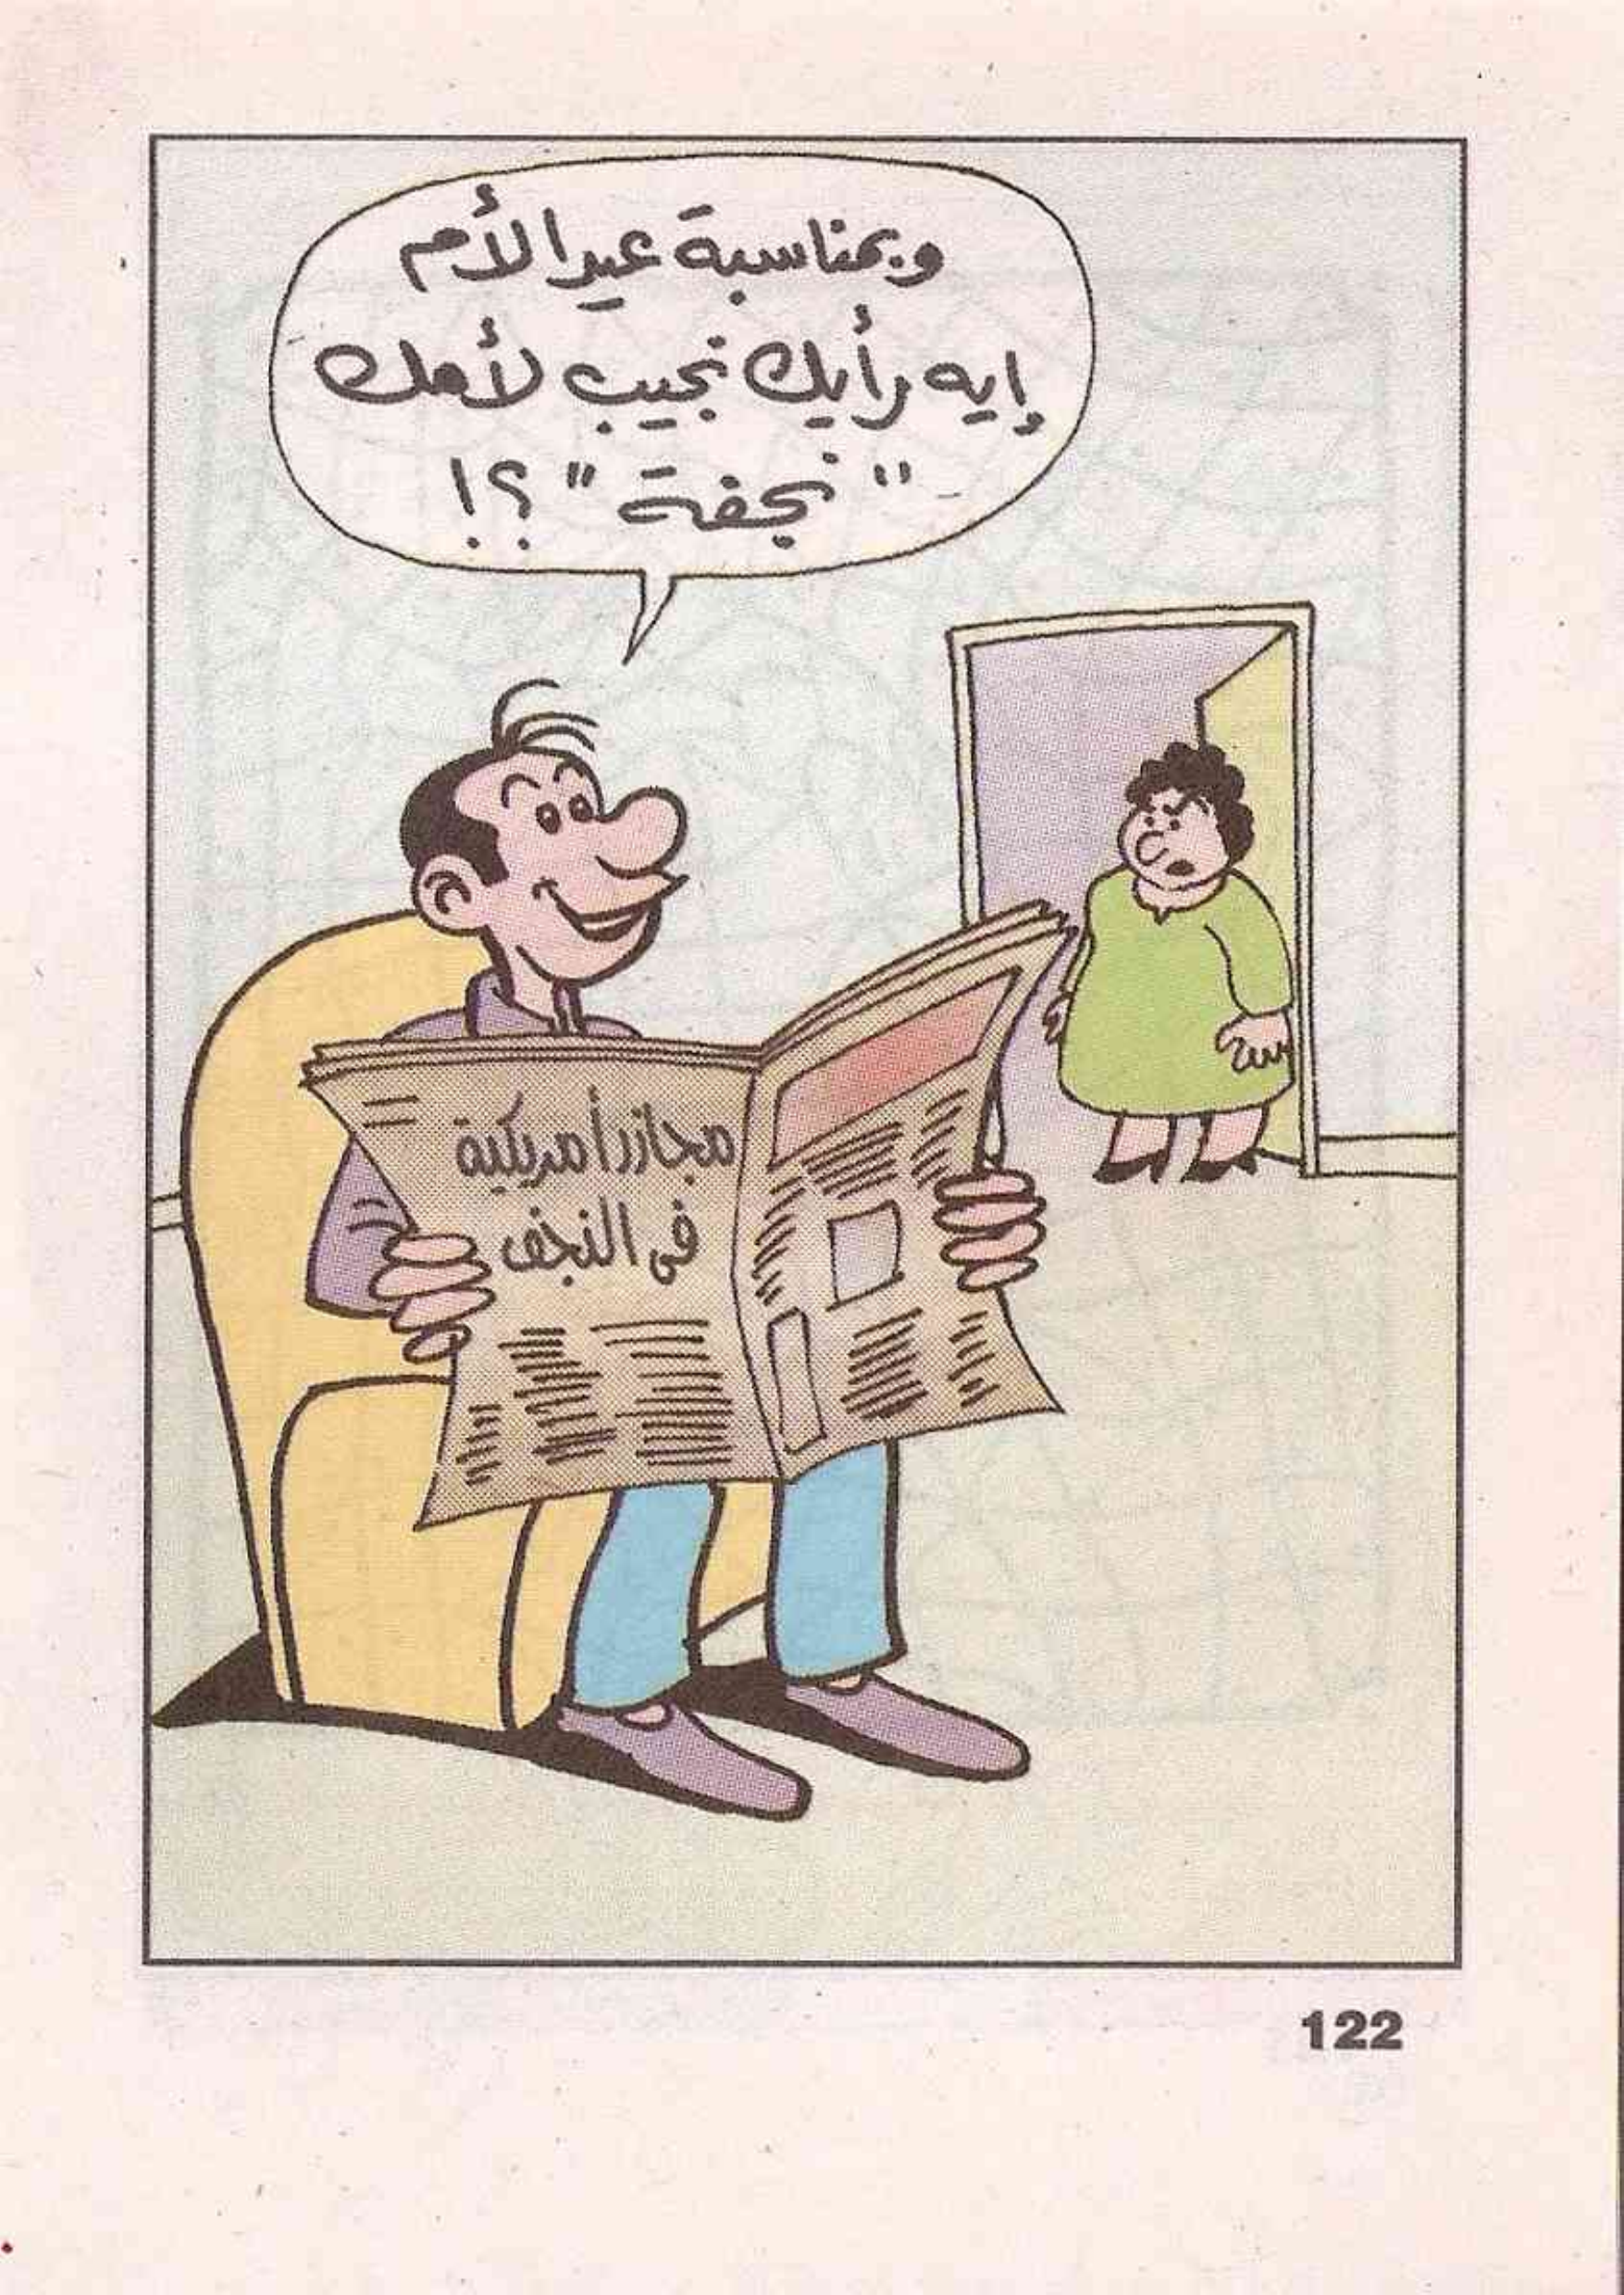 وبمناسبة عيد الأم
إيه رأيك نجيب لأمك
"نجفة"؟!
مجازر أمريكية
فى النجف
122